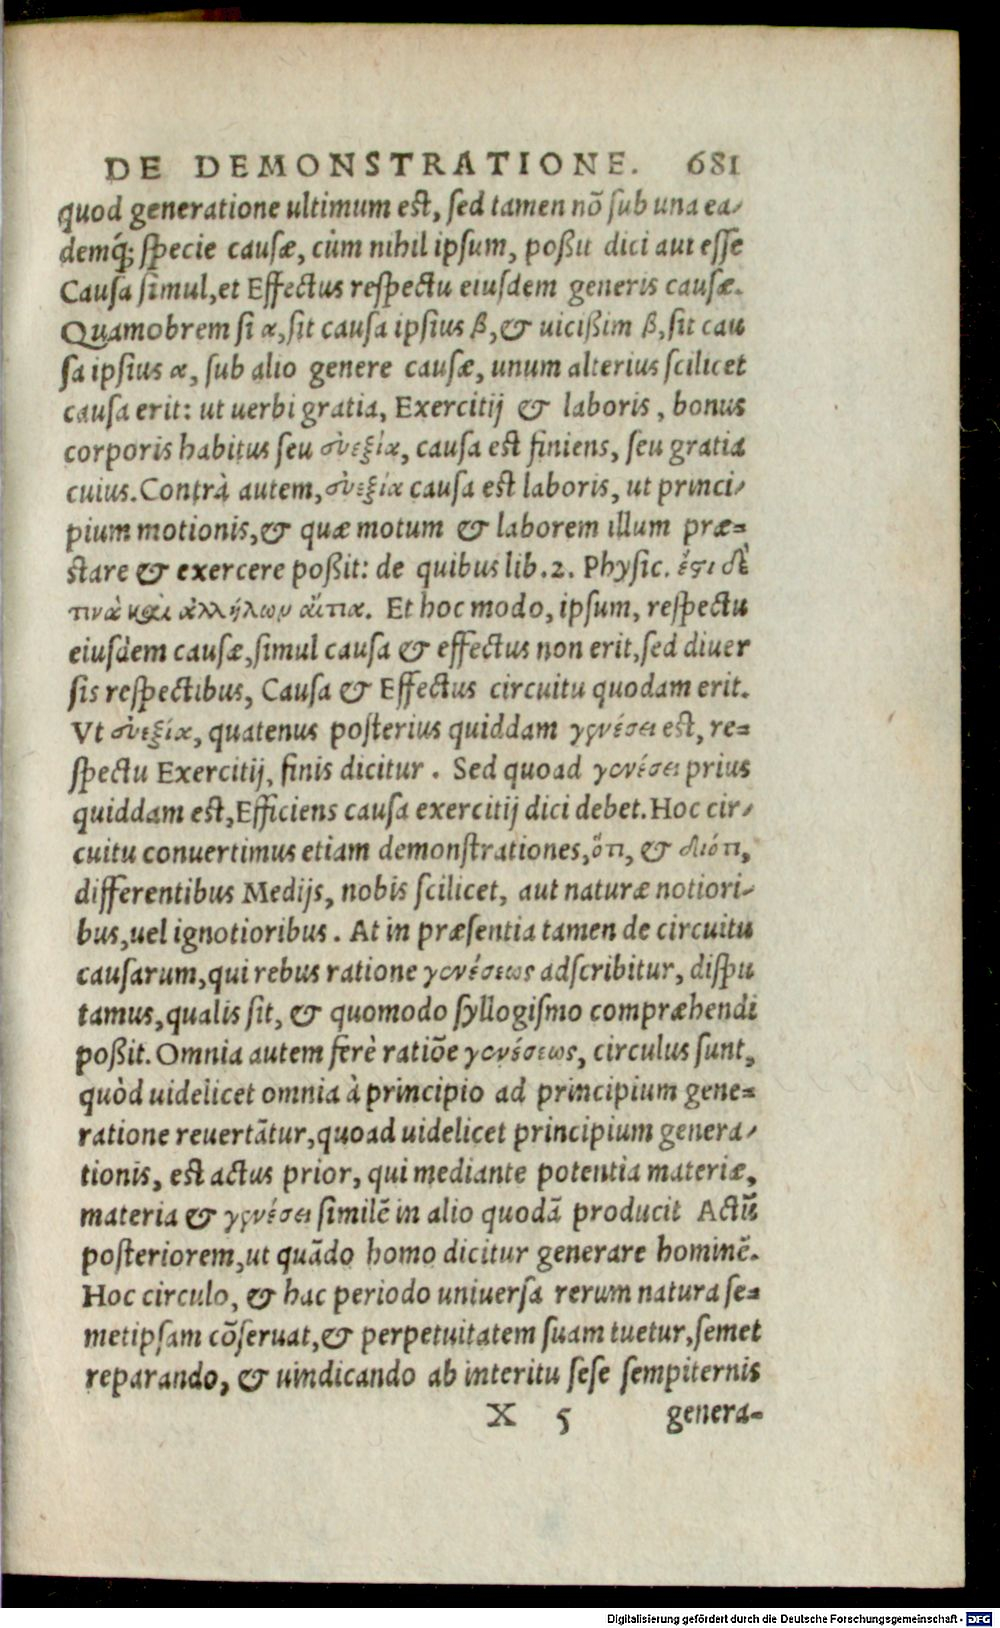 DE DEMONSTRATIONE. 681
quod generatione ultimum est, sed tamen nõ sub una ea-
demq́; specie causæ, cùm nihil ipsum, poßit dici aut esse
Causa simul, et Effectus respectu eiusdem generis causæ.
Quamobrem si α, sit causa ipsius β, & uicißim β, sit cau
sa ipsius α, sub alio genere causæ, unum alterius scilicet
causa erit: ut uerbi gratia, Exercitij & laboris, bonus
corporis habitus seu εὐεξία, causa est finiens, seu gratia
cuius. Contrà autem, εὐεξία causa est laboris, ut princi-
pium motionis, & quæ motum & laborem illum præ-
stare & exercere poßit: de quibus lib. 2. Physic. ἔστι δὲ
τινὰ καὶ ἀλλήλων αἴτια. Et hoc modo, ipsum, respectu
eiusdem causæ, simul causa & effectus non erit, sed diuer
sis respectibus, Causa & Effectus circuitu quodam erit.
Vt εὐεξία, quatenus posterius quiddam γενέσει est, re-
spectu Exercitij, finis dicitur. Sed quoad γενέσει prius
quiddam est, Efficiens causa exercitij dici debet. Hoc cir-
cuitu conuertimus etiam demonstrationes, ὅτι, & διότι,
differentibus Medijs, nobis scilicet, aut naturæ notiori-
bus, uel ignotioribus. At in præsentia tamen de circuitu
causarum, qui rebus ratione γενέσεως adscribitur, dispu
tamus, qualis sit, & quomodo syllogismo compræhendi
poßit. Omnia autem ferè ratiõe γενέσεως, circulus sunt,
quòd uidelicet omnia à principio ad principium gene-
ratione reuertãtur, quoad uidelicet principium genera-
tionis, est actus prior, qui mediante potentia materiæ,
materia & γενέσει similẽ in alio quodã producit Actũ
posteriorem, ut quãdo homo dicitur generare hominẽ.
Hoc circulo, & hac periodo uniuersa rerum natura se-
metipsam cõseruat, & perpetuitatem suam tuetur, semet
reparando, & uindicando ab interitu sese sempiternis
X 5 genera-
Digitalisierung gefördert durch die Deutsche Forschungsgemeinschaft - DFG